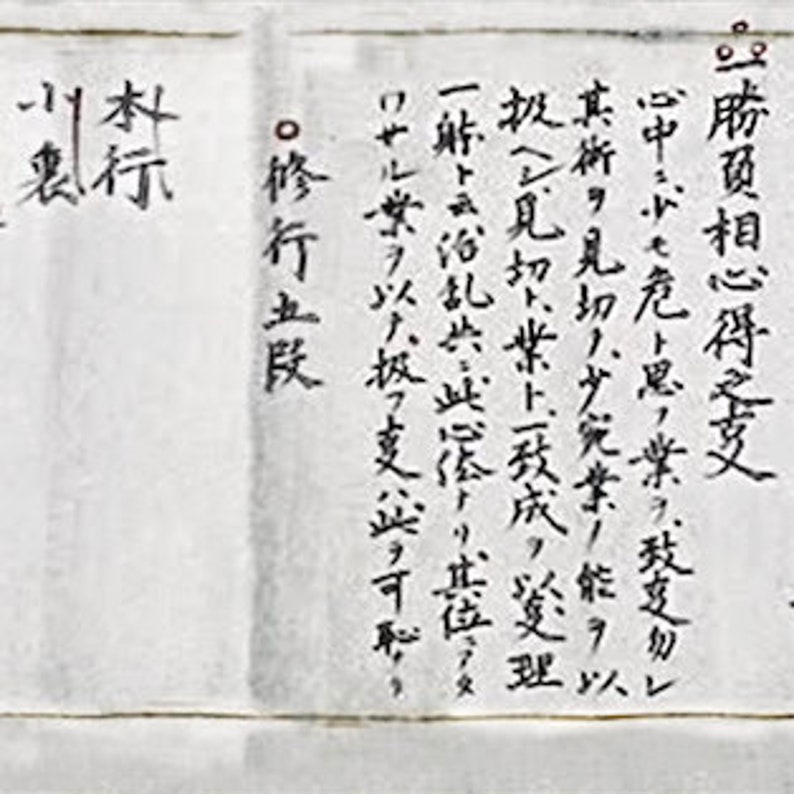 一勝負相心得之事
心中ニ少モ危ト思フ業ヲ、致事勿レ
其術ヲ見切リ、少宛業ノ能ヲ以
扱ヘシ見切ト、業ト、一致成ヲ以、事理
一躰ト云治乱共ニ此心法トリ其位ニアタ
ワサル業ヲ以テ、扱フ事ハ此ヲ可恥
修行五段
本行
小裏